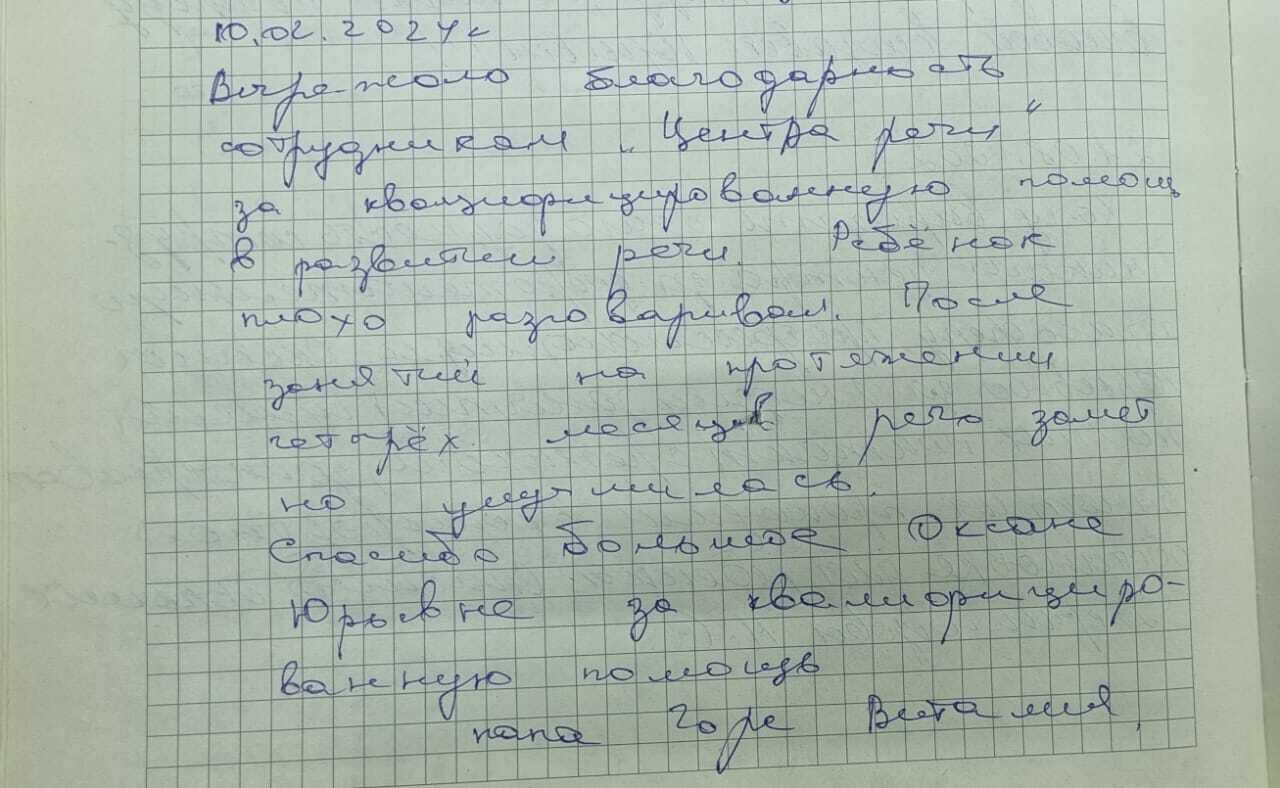 10.02.2024г
Выражаю благодарность
сотрудникам „Центра речи“
за квалифицированную помощ
в развитии речи. Ребёнок
плохо разговаривал. После
занятий на протяжении
четырёх месяцев речь замет
но улучшилась.
Спасибо большое Оксане
Юрьевне за квалифициро-
ванную помощь
папа Виталия